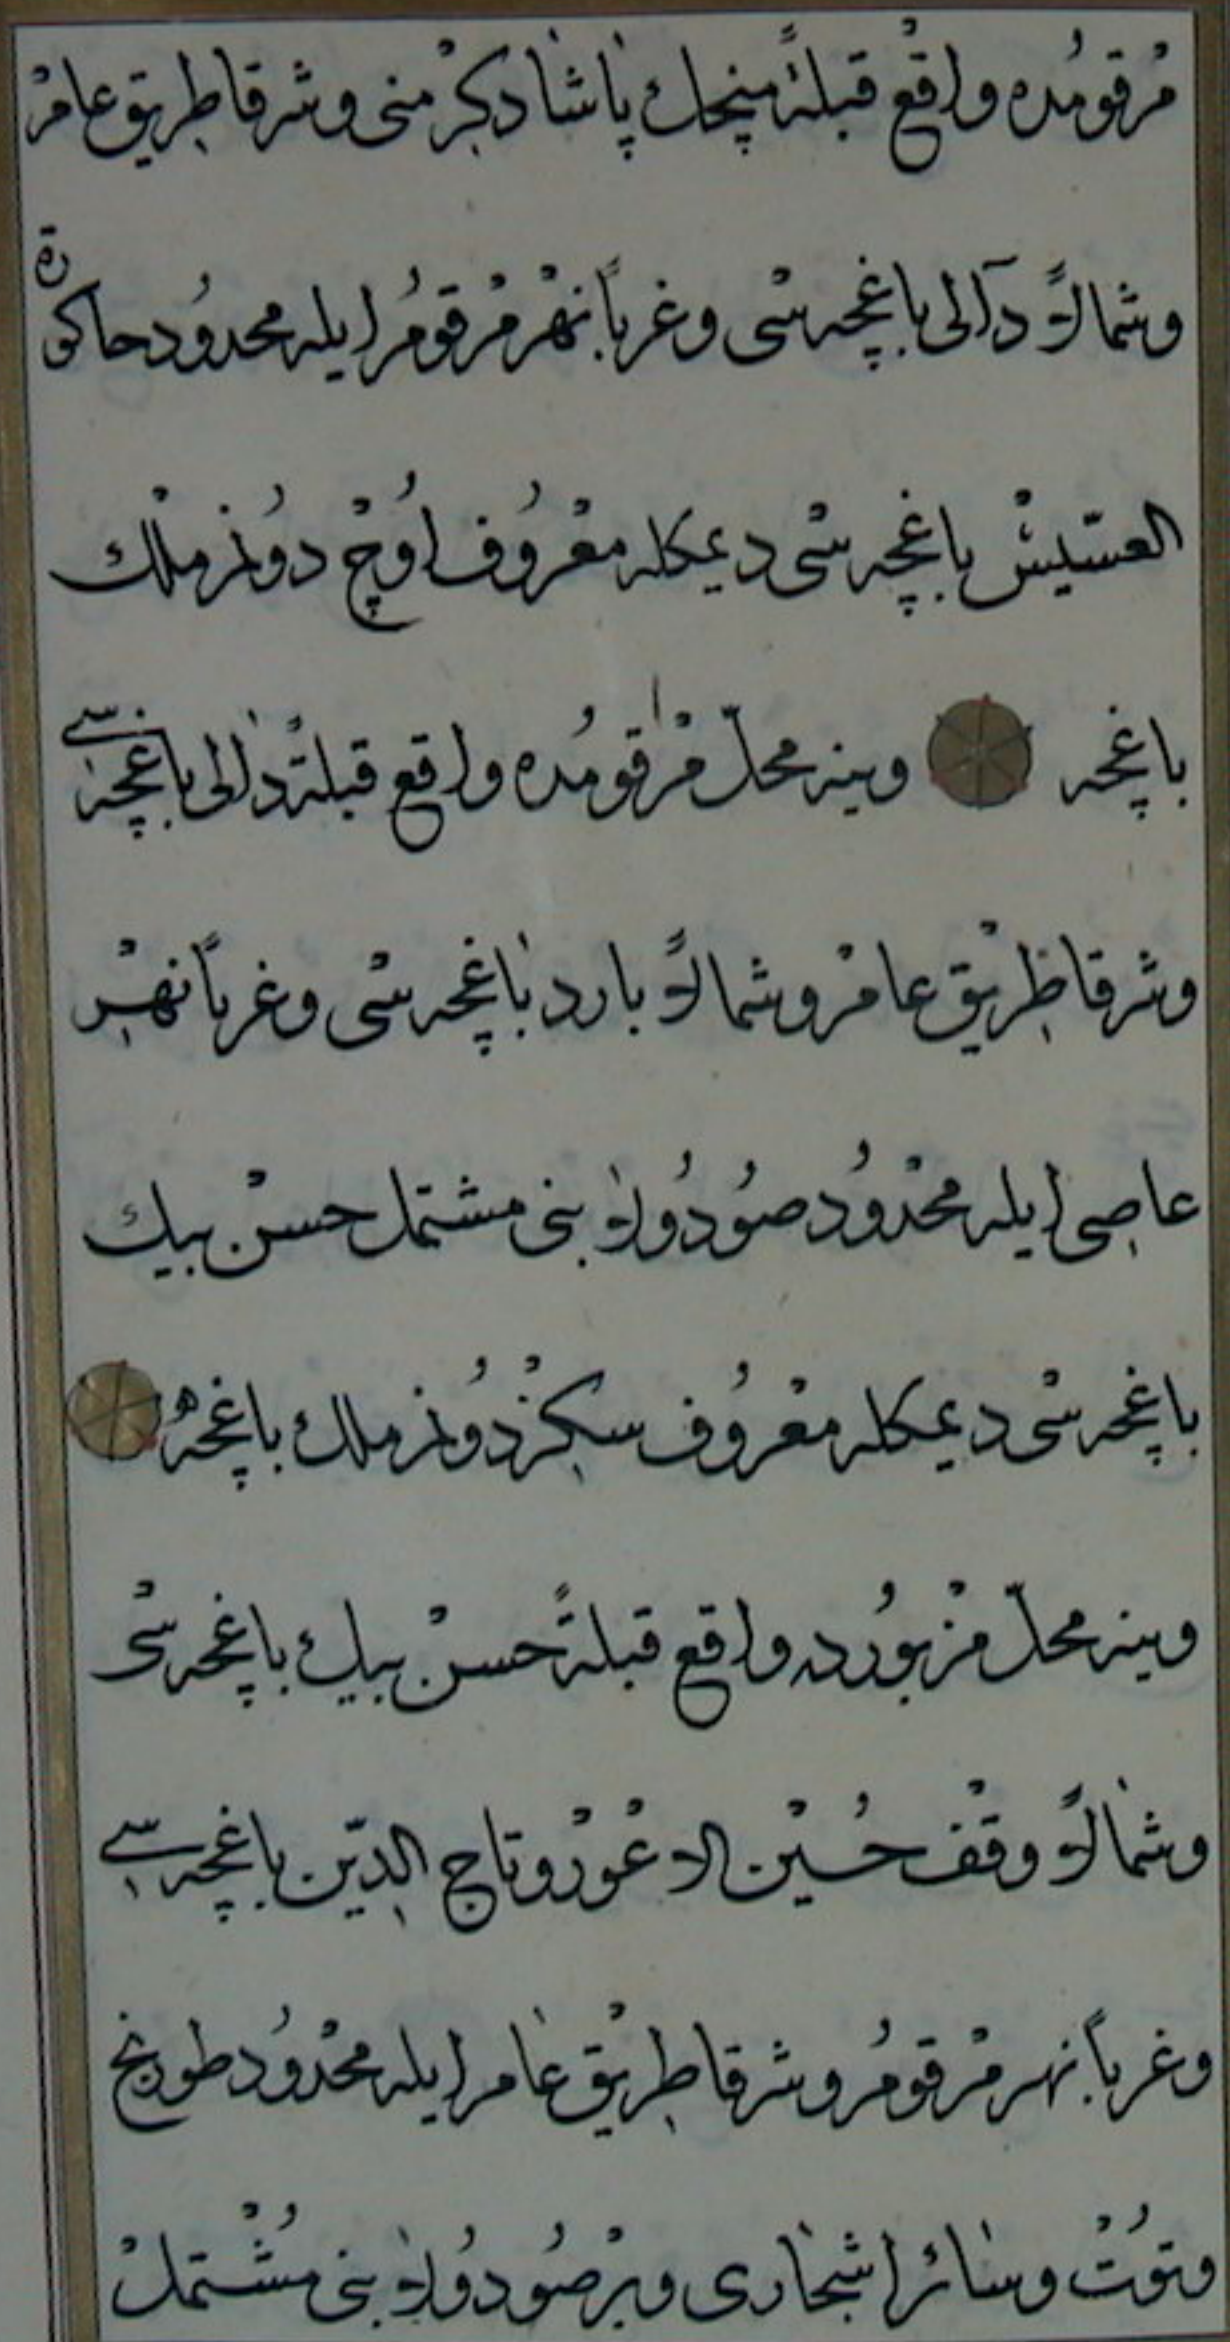 مرقومده واقع قبلةً منجك پاشا دكرمنى وشرقا طريق عامر
وشمالاً دآلى باغچه سى وغرباً نهر مرقوم ايله محدود حاكورة
العسليش باغچه سى ديمكله معروف اوچ دونم ملك
باغچه وينه محلّ مرقومده واقع قبلةً دالى باغچه سى
وشرقا طريق عامر وشمالاً بارد باغچه سى وغرباً نهر
عاصى ايله محدود صو دولابنى مشتمل حسن بيك
باغچه سى ديمكله معروف سكز دونم ملك باغچه
وينه محلّ مزبورده واقع قبلةً حسن بيك باغچه سى
وشمالاً وقف حسين الاعور وتاج الدّين باغچه سى
وغرباً نهر مرقوم وشرقا طريق عامر ايله محدود طورنج
وتوت وسائر اشجارى وبر صو دولابنى مشتمل